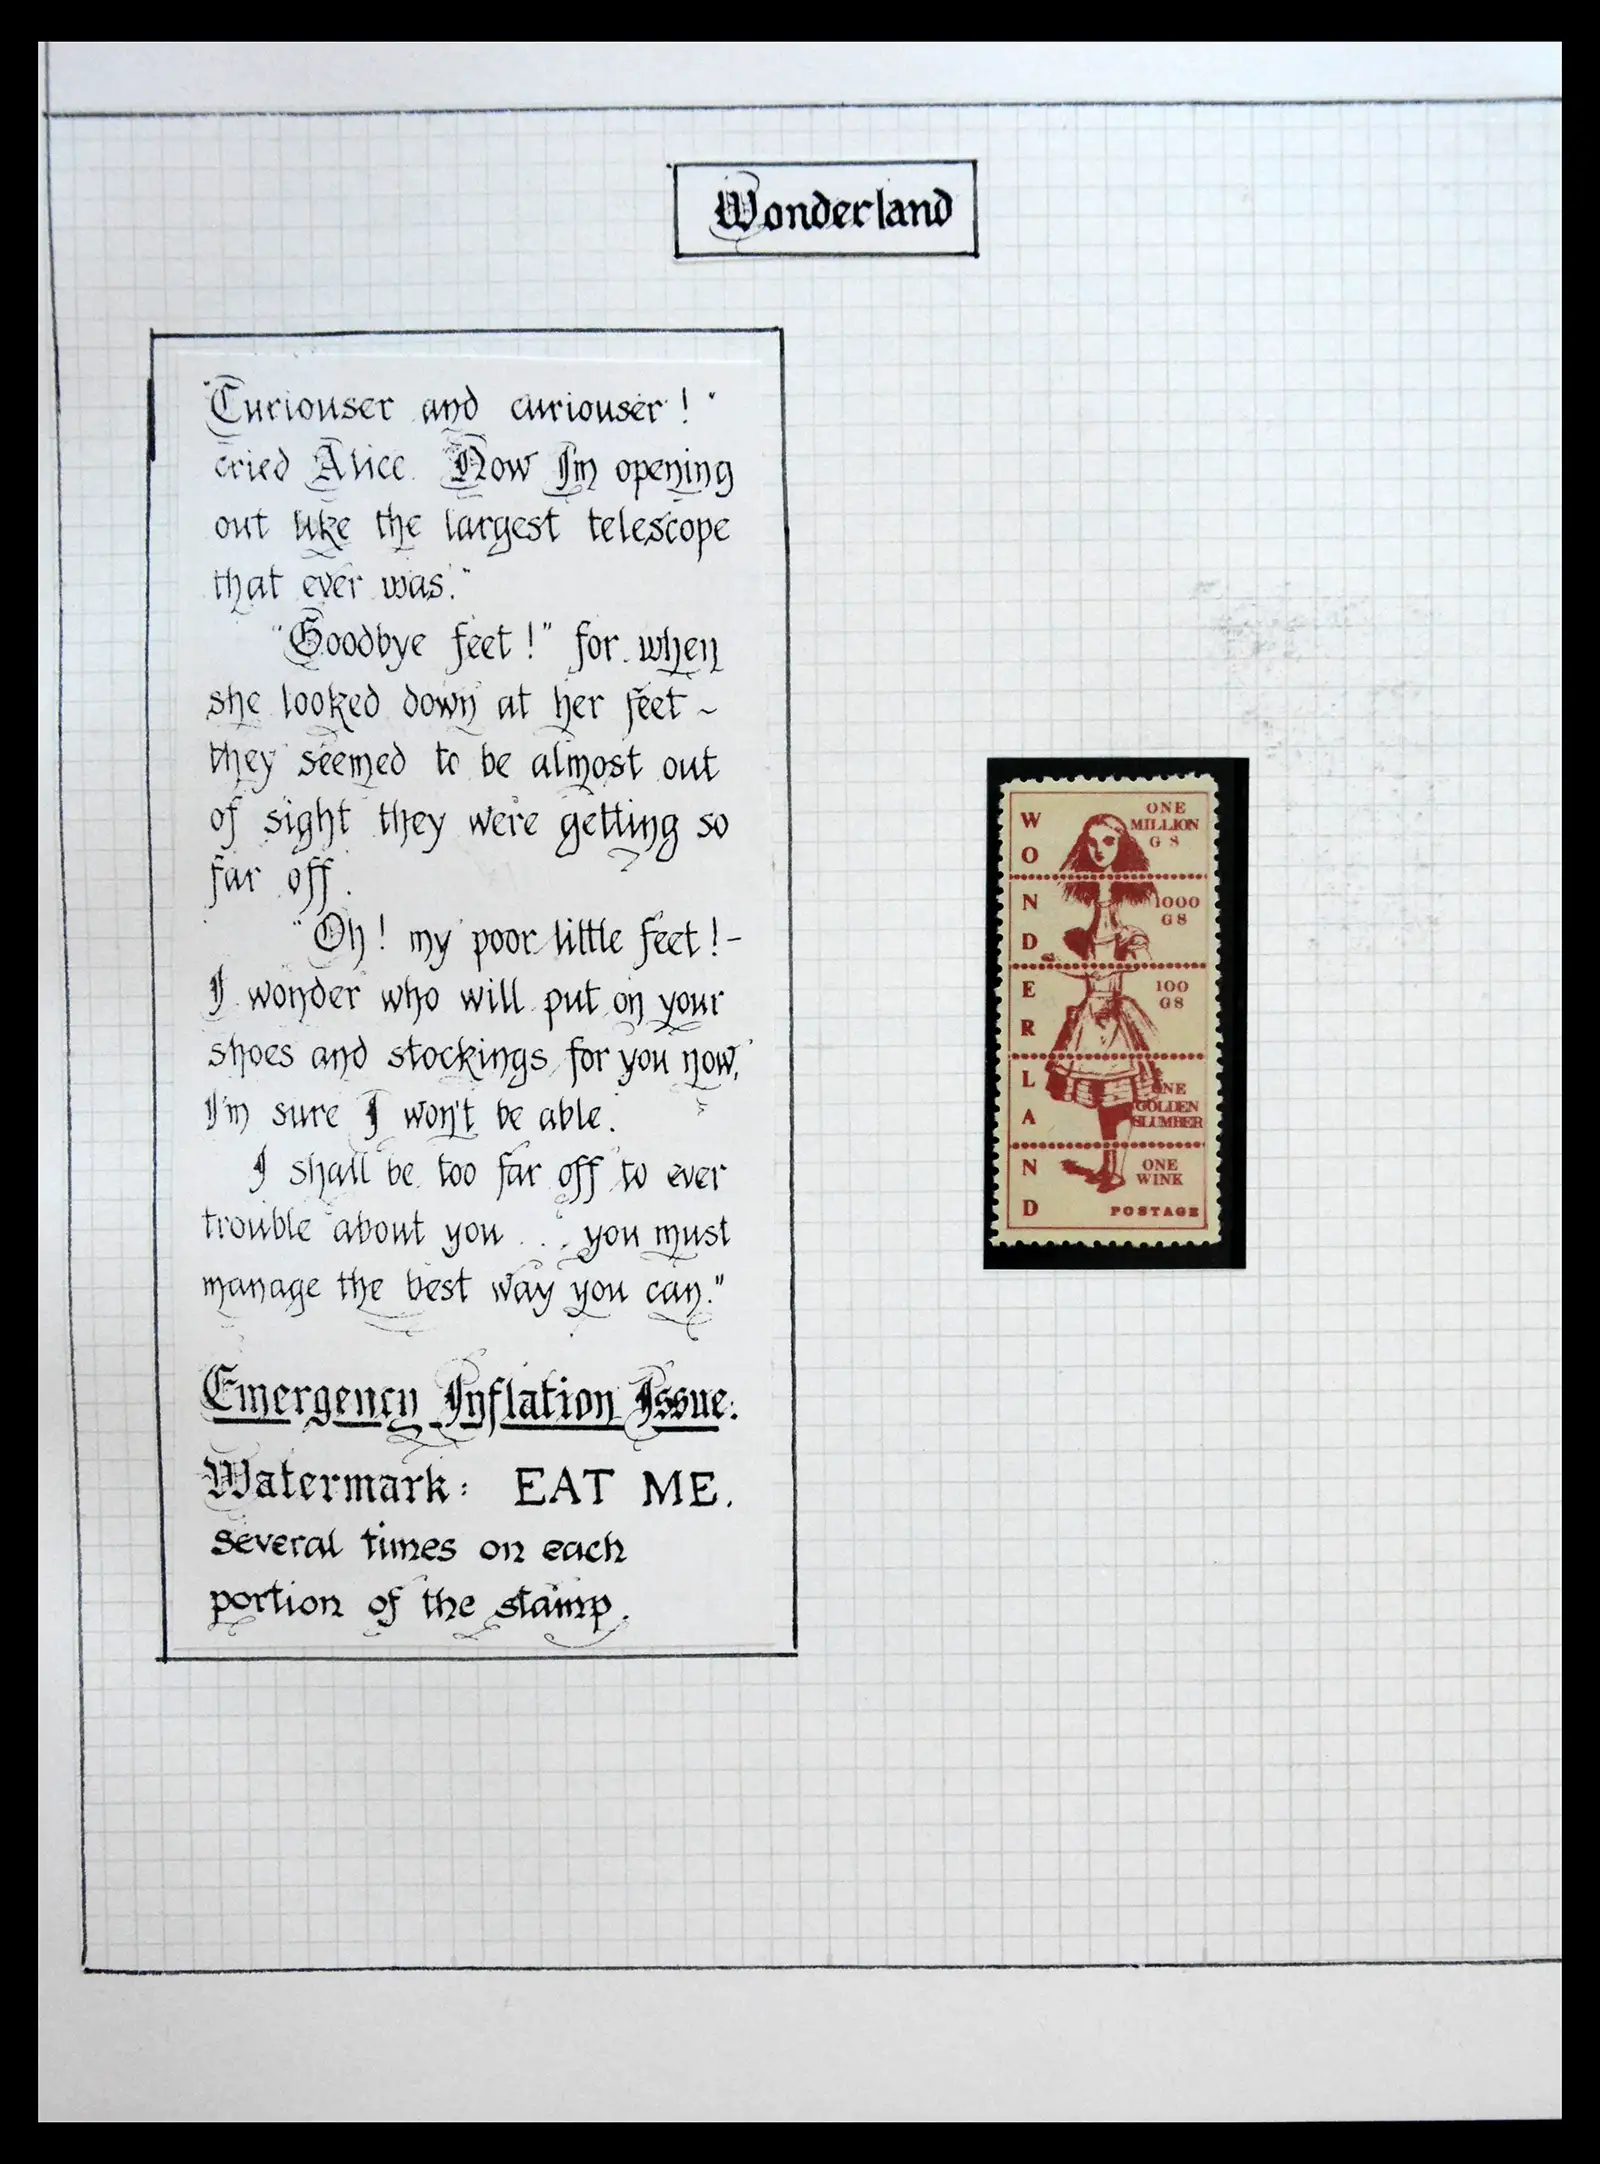 Wonderland
"Curiouser and curiouser!"
cried Alice. Now I'm opening
out like the largest telescope
that ever was."
"Goodbye feet!" for when
she looked down at her feet ~
they seemed to be almost out
of sight they were getting so
far off.
"Oh! my poor little feet! -
I wonder who will put on your
shoes and stockings for you now,
I'm sure I won't be able.
I shall be too far off to ever
trouble about you . . . you must
manage the best way you can."
Emergency Inflation Issue.
Watermark: EAT ME.
Several times on each
portion of the stamp.
WONDERLAND
ONE
MILLION
GS
1000
GS
100
GS
ONE
GOLDEN
SLUMBER
ONE
WINK
POSTAGE